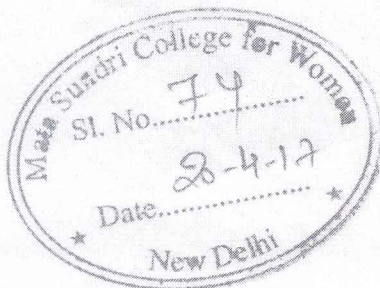 Mata Sundri College for Women
Sl. No. 74
Date 20-4-17
New Delhi